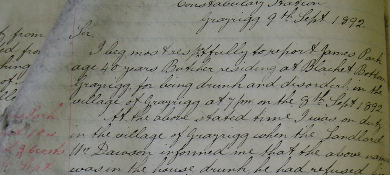 Constabulary Station
Grayrigg 9th Sept 1892
Sir,
I beg most respectfully to report James Park
age 40 years Butcher residing at Blacket Bottom
Grayrigg for being drunk and disorderly in the
village of Grayrigg at 7 pm on the 8th Sept 1892
At the above stated time I was on duty
in the village of Grayrigg when the Landlord
Mr Dawson informed me that the above nam
was in the house drunk he had refused